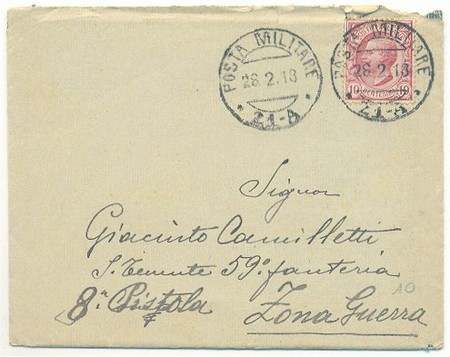 POSTA MILITARE
28.2.18
21-A
POSTA MILITARE
28.2.18
21-A
10 10
Signor
Giacinto Camilletti
S. Tenente 59° fanteria
8ª Pistola Zona Guerra
10